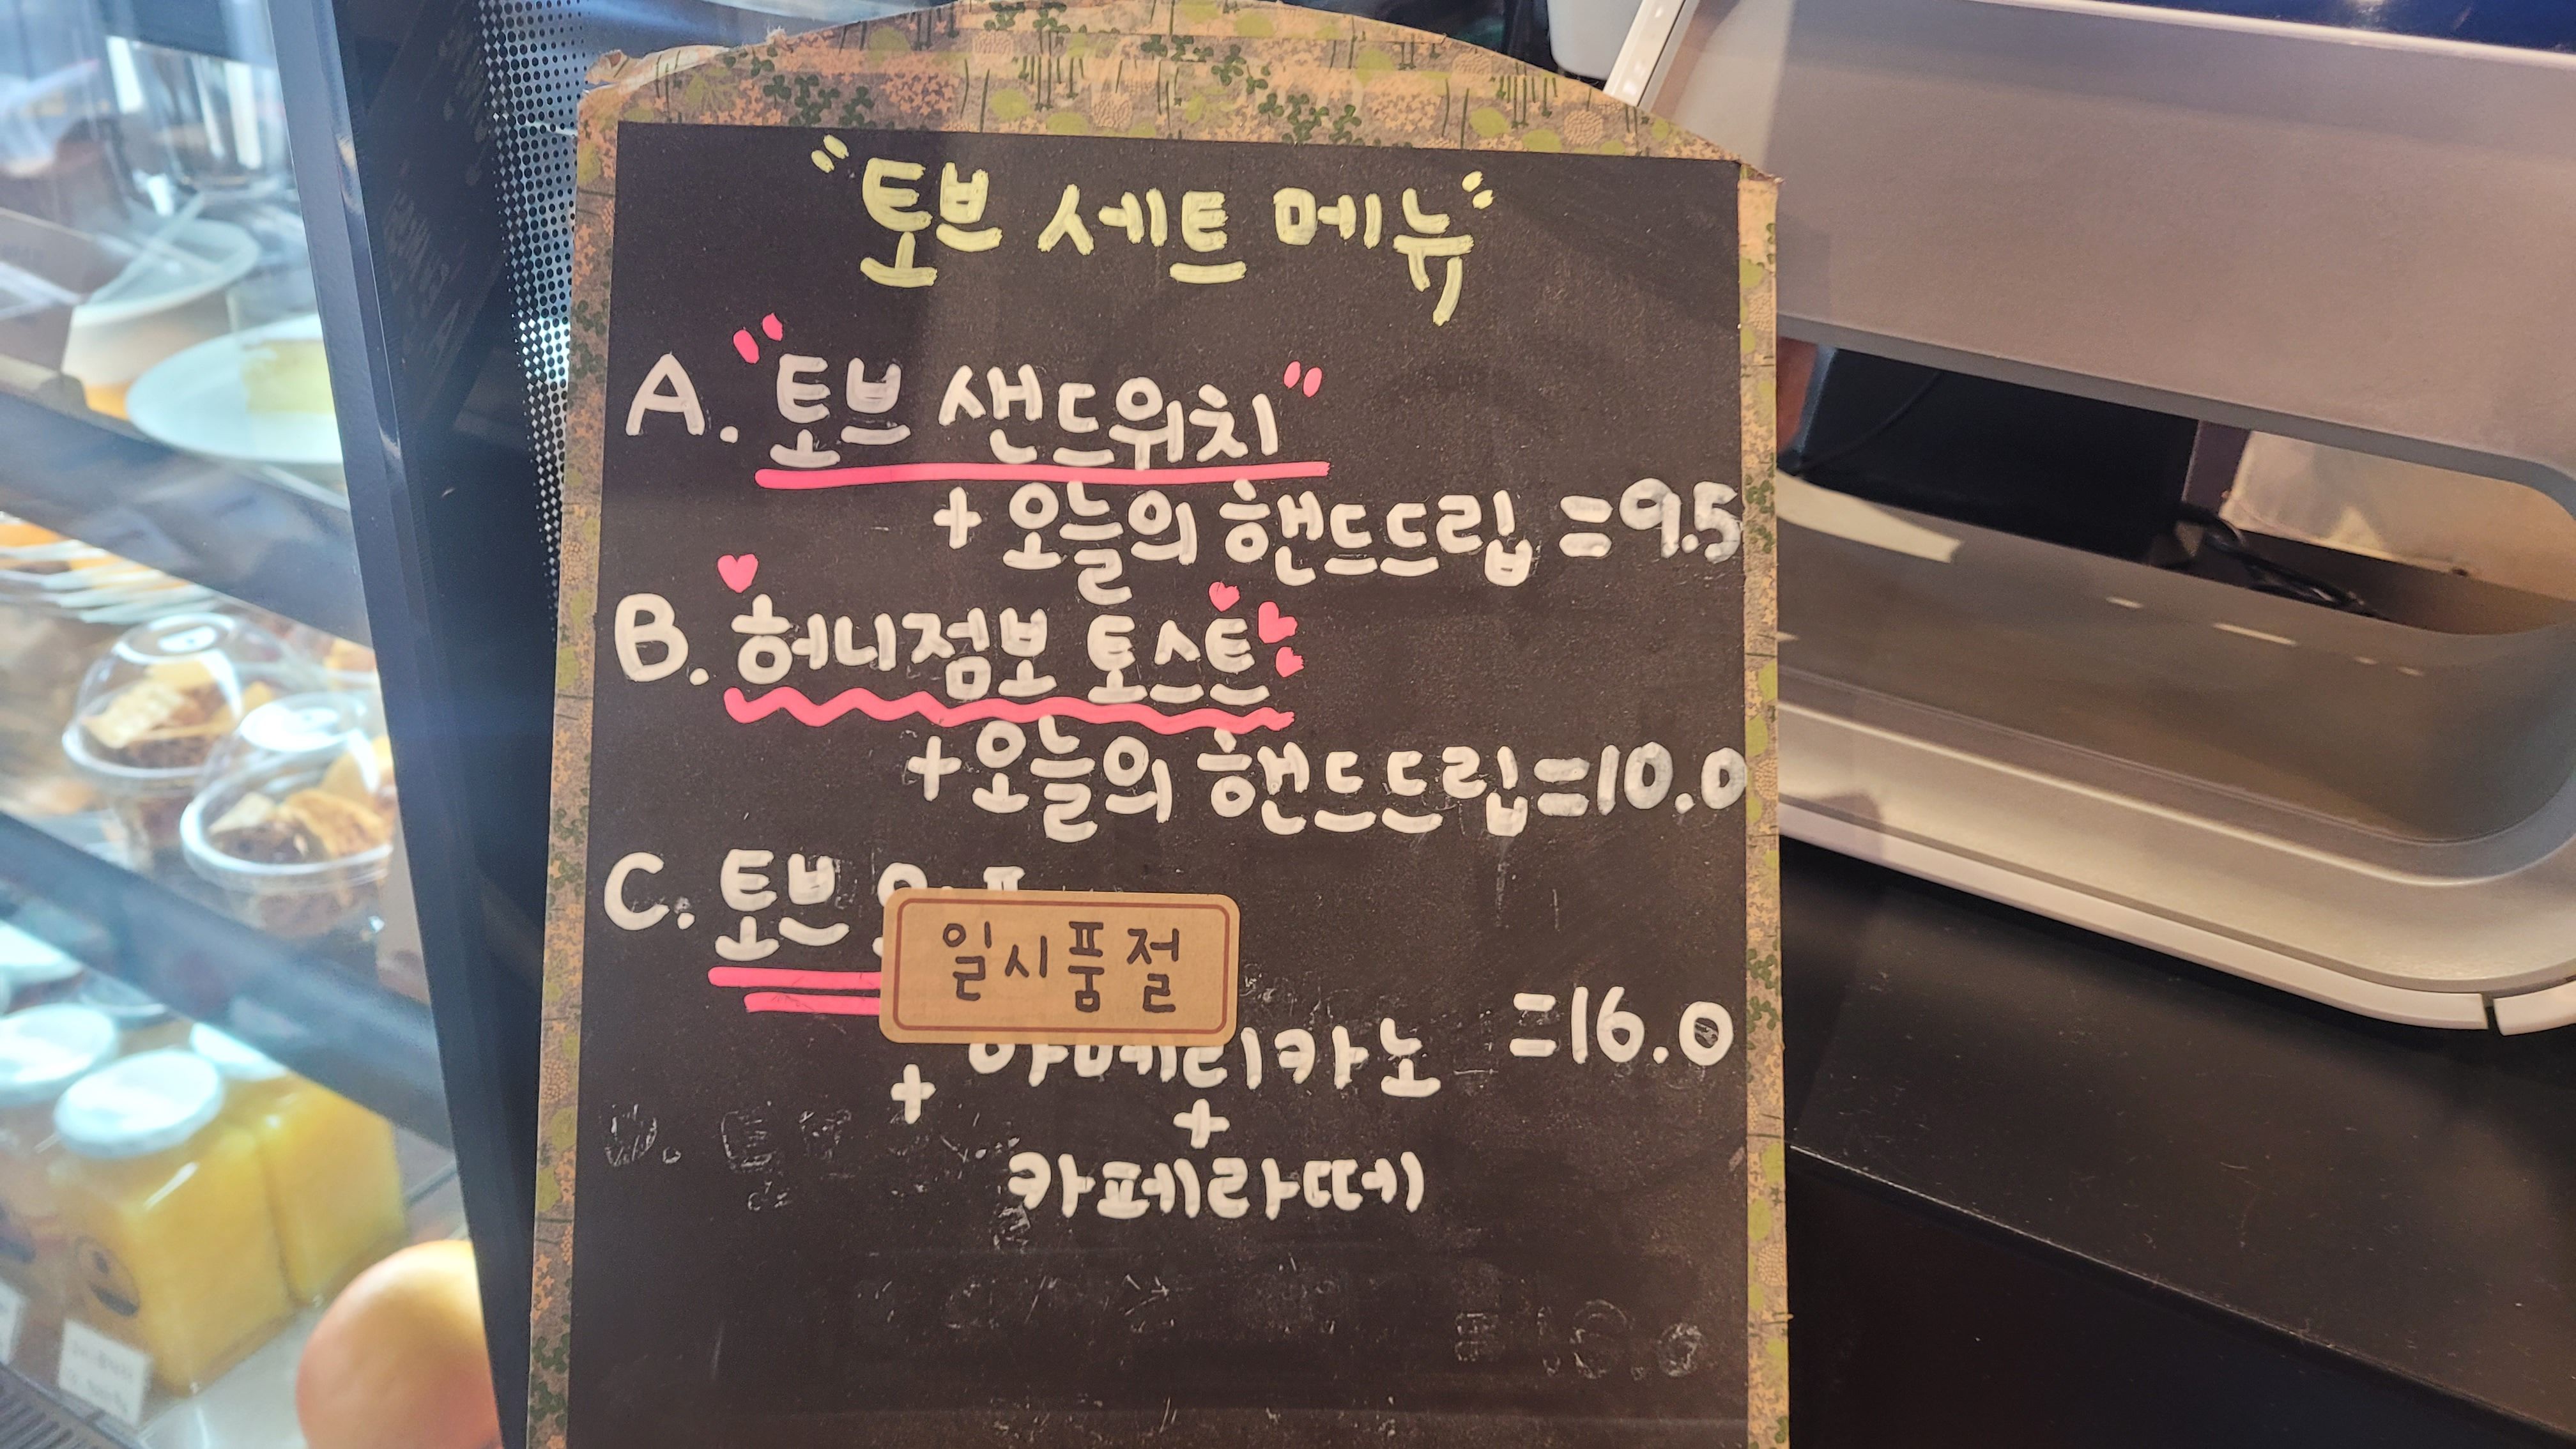 "토브 세트 메뉴"
A. "토브 샌드위치"
+ 오늘의 핸드드립 = 9.5
B. 허니점보 토스트
+ 오늘의 핸드드립 = 10.0
C. 토브
일시품절
+ 아메리카노 = 16.0
+
카페라떼